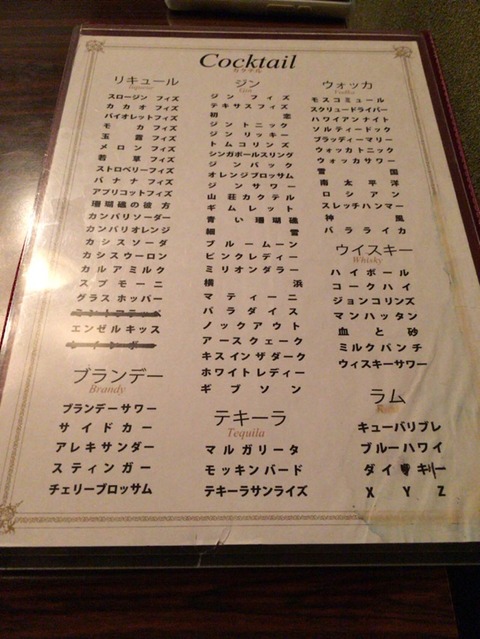 Cocktail
カクテル
リキュール
Liqueur
スロージン フィズ
カカオ フィズ
バイオレットフィズ
モカ フィズ
玉露 フィズ
メロン フィズ
若草 フィズ
ストロベリーフィズ
バナナ フィズ
アプリコットフィズ
珊瑚礁の彼方
カンパリソーダー
カンパリオレンジ
カシスソーダ
カシスウーロン
カルアミルク
スプモーニ
グラスホッパー
エンゼルキッス
ブランデー
Brandy
ブランデーサワー
サイドカー
アレキサンダー
スティンガー
チェリーブロッサム
ジン
Gin
ジンフィズ
テキサスフィズ
初恋
ジントニック
ジンリッキー
トムコリンズ
シンガポールスリング
ジンバック
オレンジブロッサム
ジンサワー
山荘カクテル
ギムレット
青い珊瑚礁
細雪
ブルームーン
ピンクレディー
ミリオンダラー
横浜
マティーニ
パラダイス
ノックアウト
アースクェーク
キスインザダーク
ホワイトレディー
ギブソン
テキーラ
Tequila
マルガリータ
モッキンバード
テキーラサンライズ
ウォッカ
Vodka
モスコミュール
スクリュードライバー
ハワイアンナイト
ソルティードック
ブラッディーマリー
ウォッカトニック
ウォッカサワー
雪国
南太平洋
ロシアン
スレッヂハンマー
神風
バラライカ
ウイスキー
Whisky
ハイボール
コークハイ
ジョンコリンズ
マンハッタン
血と砂
ミルクパンチ
ウィスキーサワー
ラム
Rum
キューバリブレ
ブルーハワイ
ダイキリー
X Y Z